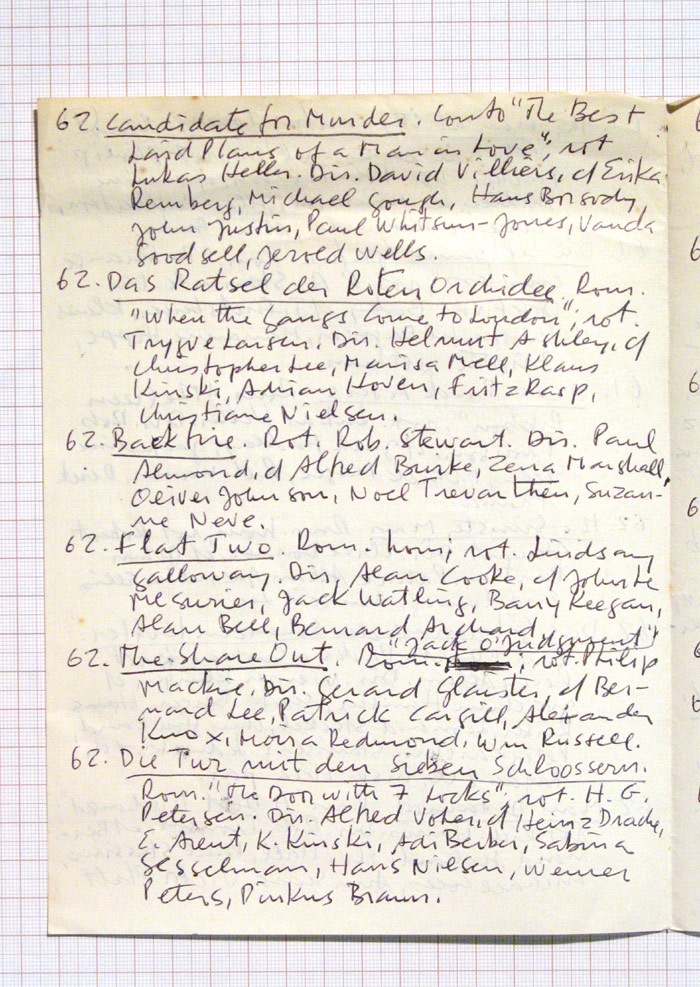 62. Candidate for Murder. Conto "The Best
Laid Plans of a Man in Love", rot
Lukas Heller. Dir. David Villiers, c/ Erika
Remberg, Michael Gough, Hans Borsody,
John Justin, Paul Whitsun-Jones, Vanda
Goodsell, Jerold Wells.
62. Das Ratsel der Roten Orchidee. Rom.
"When the Gangs Come to London"; rot.
Trygve Larsen. Dir. Helmut Ashley, c/
Christopher Lee, Marisa Mell, Klaus
Kinski, Adrian Hoven, Fritz Rasp,
Christiane Nielsen.
62. Backfire. Rot. Rob. Stewart. Dir. Paul
Almond, c/ Alfred Burke, Zena Marshall,
Oliver Johnson, Noel Trevarthen, Suzan-
ne Neve.
62. Flat Two. Rom. hom; rot. Lindsay
Galloway. Dir. Alan Cooke, c/ John Le
Mesurier, Jack Watling, Barry Keegan,
Alan Bell, Bernard Archard.
"Jack O'Judgment"
62. The Share Out. Rom. ; rot. Philip
Mackie. Dir. Gerard Glaister, c/ Ber-
nard Lee, Patrick Cargill, Alexander
Knox, Moira Redmond, Wm Russell.
62. Die Tur mit den Sieben Schloossern.
Rom. "The Door with 7 Locks"; rot. H. G.
Petersen. Dir. Alfred Voher, c/ Heinz Drache,
E. Arent, K. Kinski, Adi Berber, Sabina
Sesselman, Hans Nielsen, Werner
Peters, Pinkus Braun.